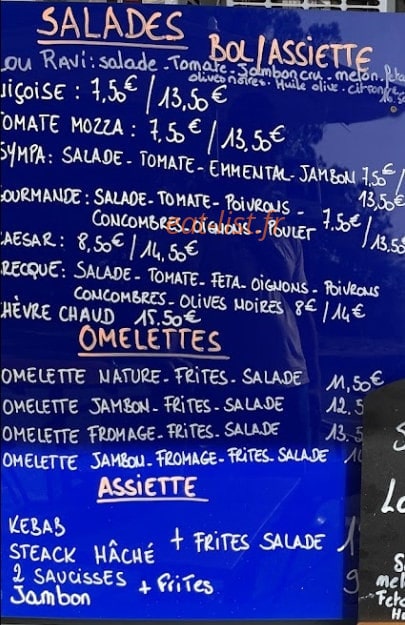 SALADES BOL/ASSIETTE
LOU RAVI: SALADE - TOMATE - JAMBON CRU - MELON - FETA
OLIVES NOIRES - HUILE OLIVE - CITRONNÉE
IÇOISE : 7,50€ / 13,50€
TOMATE MOZZA : 7,50€ / 13,50€
SYMPA: SALADE - TOMATE - EMMENTAL - JAMBON 7,50€/
13,50€
GOURMANDE: SALADE - TOMATE - POIVRONS -
CONCOMBRES - OIGNON POULET 7.50€ / 13.50
eat-list.fr
CAESAR: 8,50€ / 14,50€
RECQUE: SALADE - TOMATE - FETA - OIGNONS - POIVRONS
CONCOMBRES - OLIVES NOIRES 8€ / 14€
HÈVRE CHAUD 15.50€
OMELETTES
OMELETTE NATURE - FRITES - SALADE 11,50€
OMELETTE JAMBON - FRITES - SALADE 12.5
OMELETTE FROMAGE - FRITES - SALADE 13.5
OMELETTE JAMBON - FROMAGE - FRITES - SALADE
ASSIETTE
KEBAB
STEACK HÂCHÉ + FRITES SALADE 1
2 SAUCISSES + FRITES 9
JAMBON